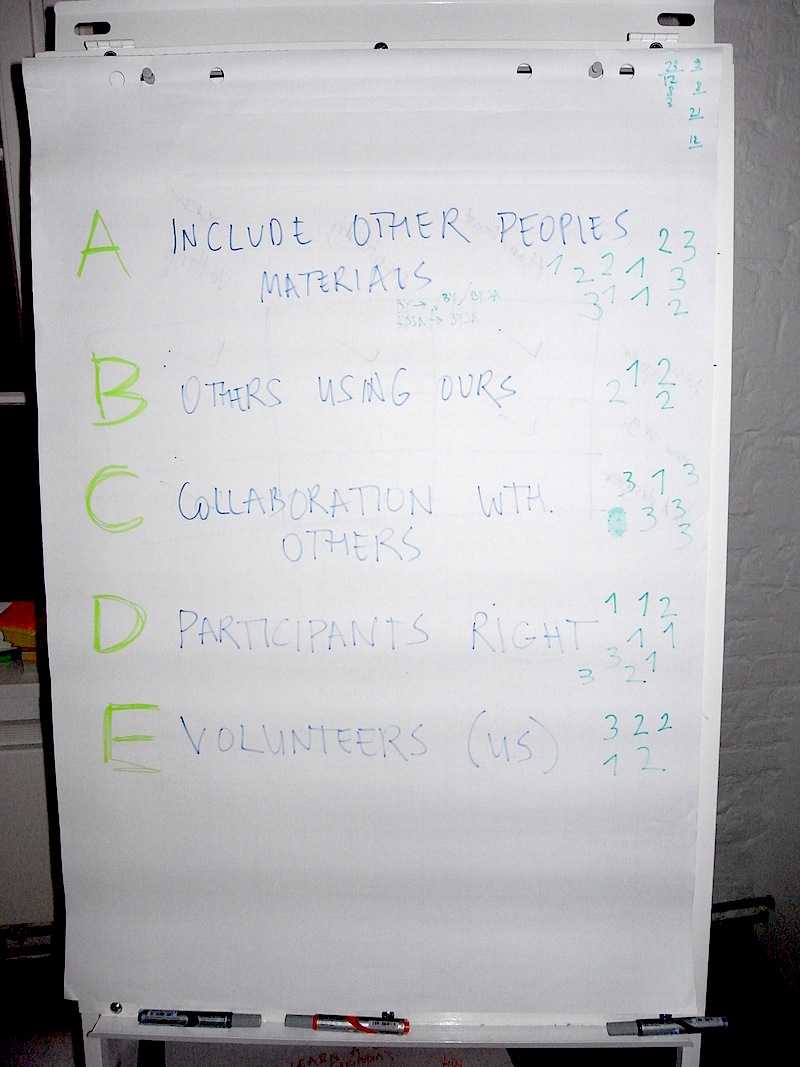 23 9
12 8
8
3 21
12
A INCLUDE OTHER PEOPLES 2 3
MATERIALS 1 2 2 1 3
3 1 1 2
BY → BY/BYSA
BYSA → BYSA
B OTHERS USING OURS 2 1 2
2
C COLLABORATION WTH. 3 1 3
OTHERS 3 3
3
D PARTICIPANTS RIGHT 1 1 2
1 1
3 2 1
3
E VOLUNTEERS (US) 3 2 2
1 2
LEARN